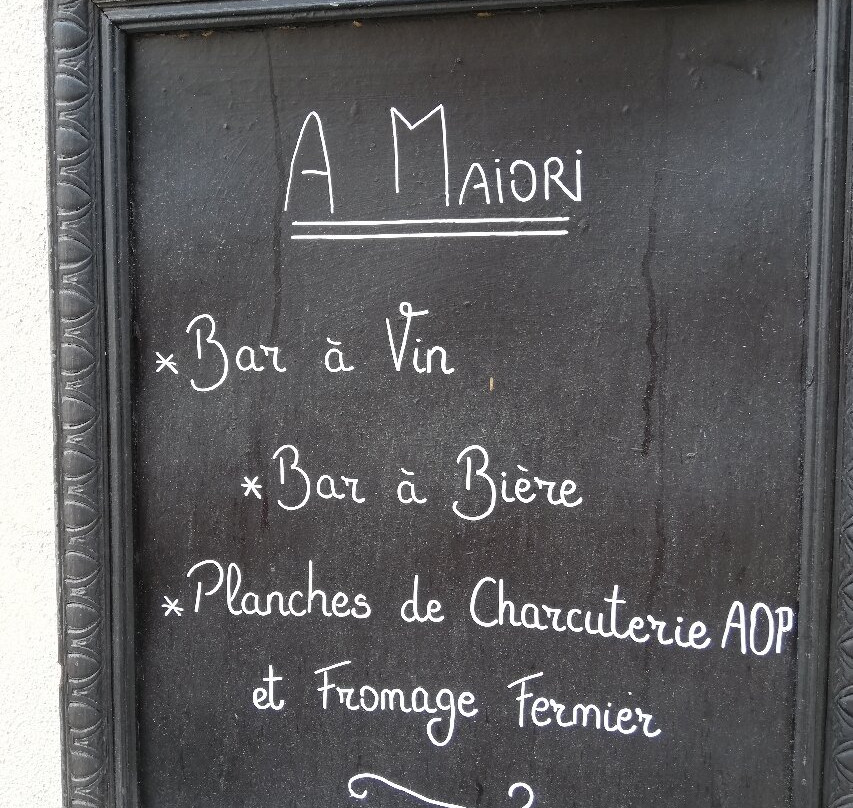 A MAiORi
*Bar à Vin
*Bar à Bière
*Planches de Charcuterie AOP
et Fromage Fermier